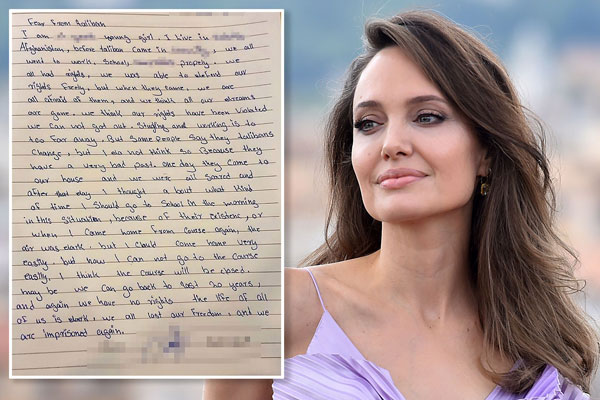 Fear From taliban
I am young girl. I live in
Afghanistan, before taliban came in , we all
went to work, School, properly, we
all had rights, we was able to defend our
rights freely, but when they came, we are
all afraid of them, and we think all our dreams
are gone. we think our rights have been Violated
we can not got out, Studing and working is to
too far away. But Some people Say they talibans
Change, but I do not think so because they
have a very bad past. one day they came to
our house and we were all scared and
after that day I thought a bout what kind
of time I Should go to School in the morning
in this Situation, because of their existenc, or
when I Came home from Course again, the
air was dark, but I Could come home very
easily, but now I can not go to the Course
easily, I think the Course will be closed.
may be we can go back to 20 years,
and again we have no rights the life of all
of us is dark, we all lost our freedom, and we
are imprisoned again.